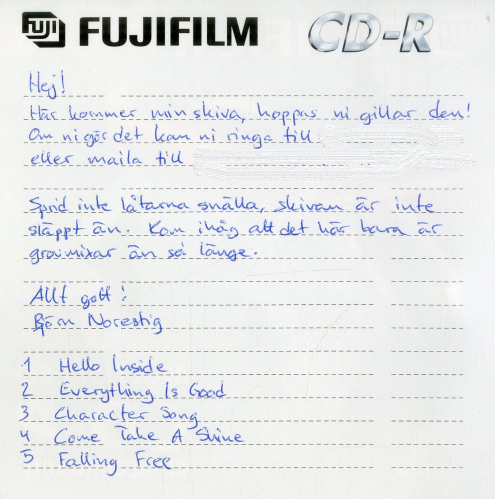 FUJI FUJIFILM CD-R
Hej!
Här kommer min skiva, hoppas ni gillar den!
Om ni gör det kan ni ringa till
eller maila till
Sprid inte låtarna snälla, skivan är inte
släppt än. Kom ihåg att det här bara är
grovmixar än så länge.
Allt gott!
Björn Norestig
1 Hello Inside
2 Everything Is Good
3 Character Song
4 Come Take A Shine
5 Falling Free